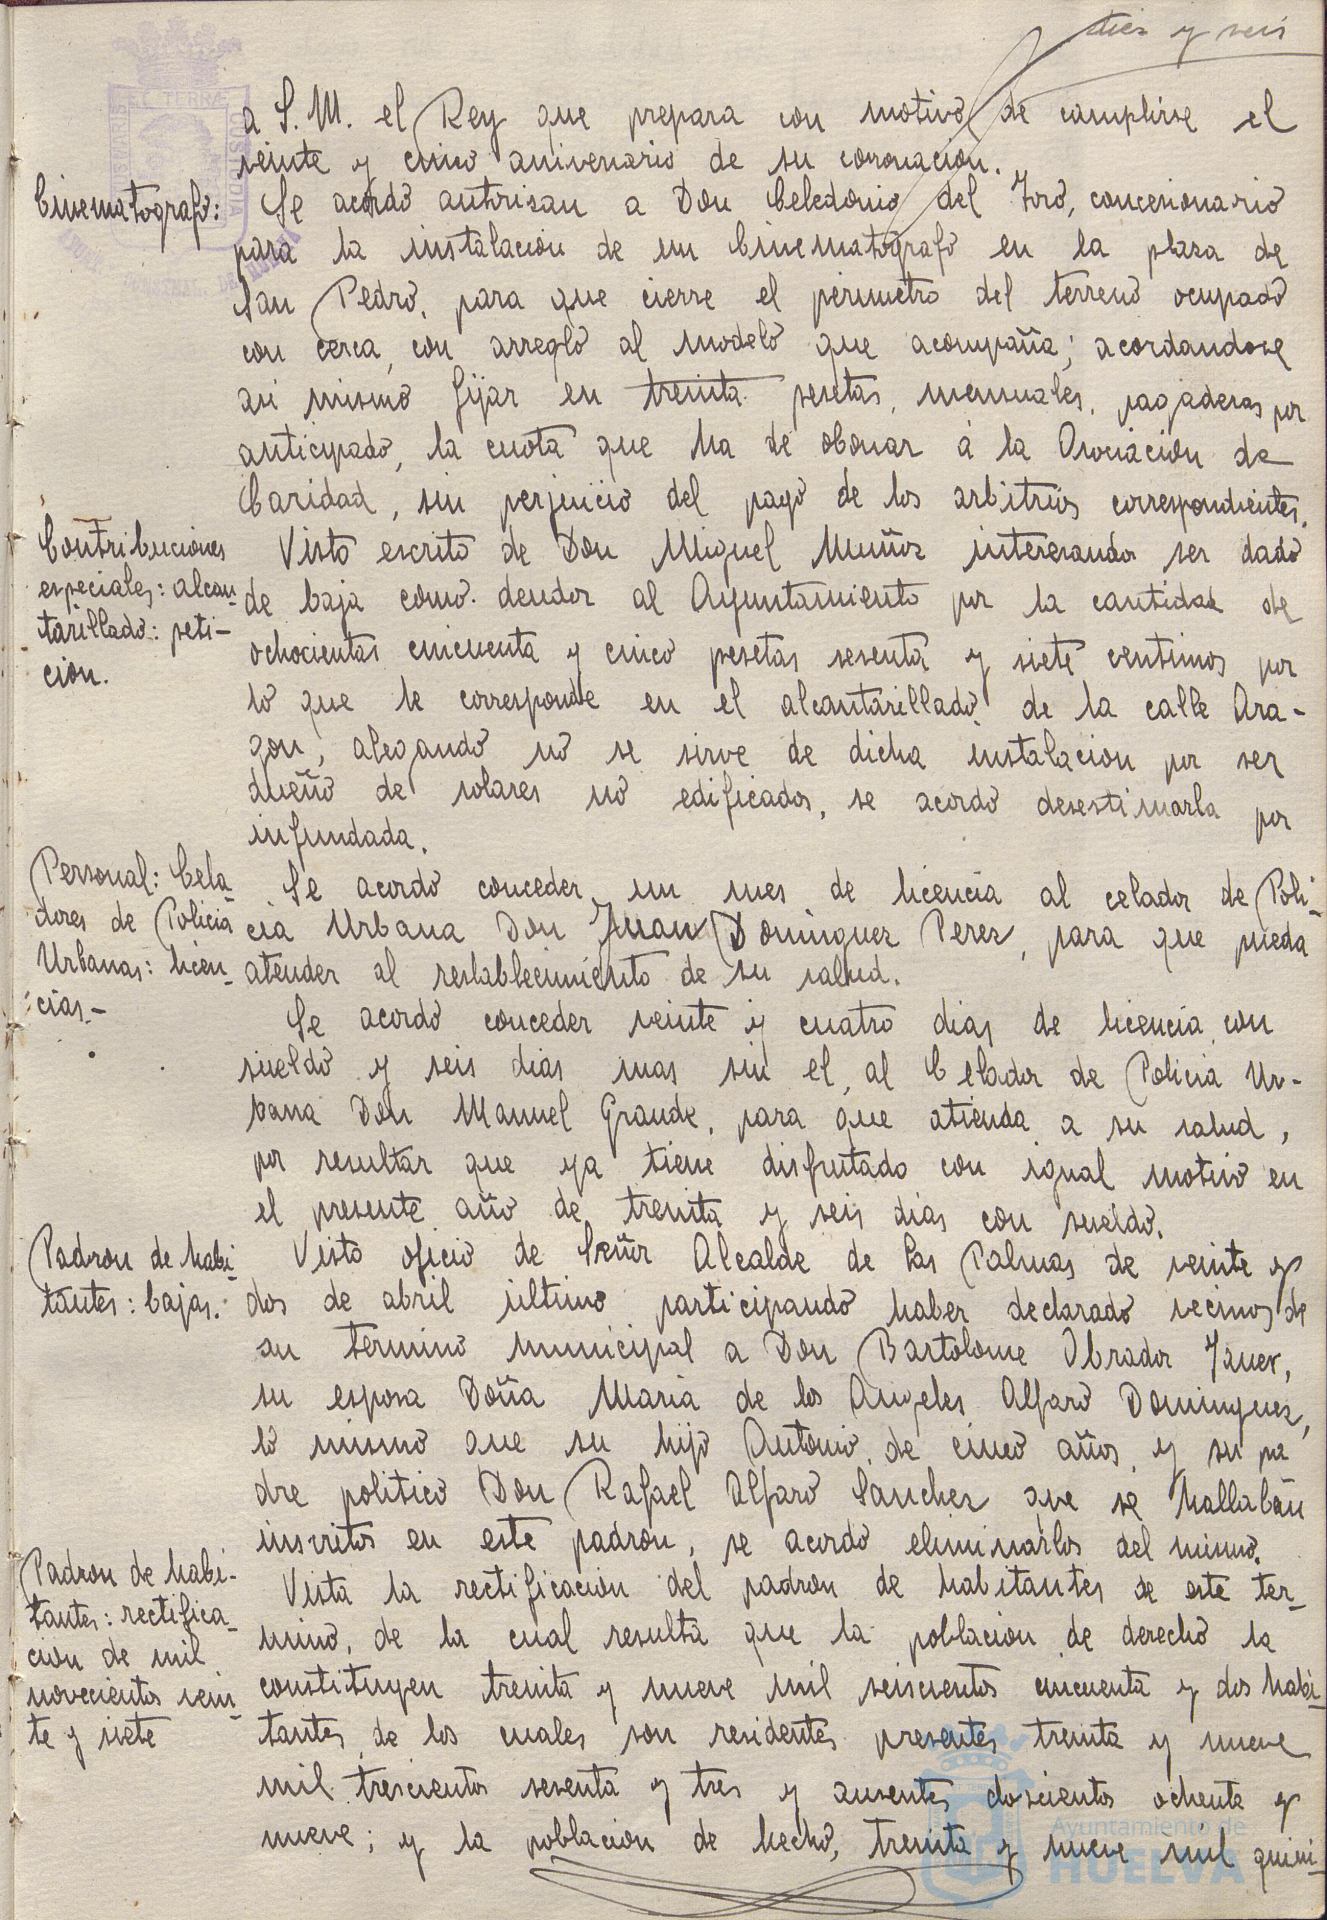 diez y seis
a S. M. el Rey que prepara con motivo de cumplirse el
veinte y cinco aniversario de su coronacion.
Cinematografo:
Se acordó autorizan a Don Celedonio del Toro, concesionario
para la instalacion de un Cinematografo en la plaza de
San Pedro, para que cierre el perimetro del terreno ocupado
con cerca, con arreglo al modelo que acompaña; acordandose
asi mismo fijar en treinta pesetas, mensuales, pagaderas por
anticipado, la cuota que ha de abonar á la Asociacion de
Caridad, sin perjuicio del pago de los arbitrios correspondientes.
Contribuciones
especiales: alcan-
tarillado: peti-
cion.
Visto escrito de Don Miguel Muñoz interesando ser dado
de baja como deudor al Ayuntamiento por la cantidad de
ochocientas cincuenta y cinco pesetas sesenta y siete centimos por
lo que le corresponde en el alcantarillado de la calle Ara-
gon, alegando no se sirve de dicha instalacion por ser
dueño de solares no edificados, se acordó desestimarla por
infundada.
Personal: Cela-
dores de Policia
Urbanas: licen-
cias.-
Se acordó conceder un mes de licencia al celador de Poli-
cia Urbana Don Juan Dominguez Perez, para que pueda
atender al restablecimiento de su salud.
Se acordó conceder veinte y cuatro dias de licencia con
sueldo y seis dias mas sin el, al Celador de Policia Ur-
bana Don Manuel Grande, para que atienda a su salud,
por resultar que ya tiene disfrutado con igual motivo en
el presente año de treinta y seis dias con sueldo.
Padron de habi-
tantes: bajas.
Visto oficio de Señor Alcalde de Las Palmas de veinte y
dos de abril ultimo participando haber declarado vecinos de
su termino municipal a Don Bartolome Obrador Janer,
su esposa Doña Maria de los Angeles Alfaro Dominguez,
lo mismo que su hijo Antonio, de cinco años, y su pa
dre politico Don Rafael Alfaro Sanchez que se hallaban
inscritos en este padron, se acordó eliminarlos del mismo.
Padron de habi-
tantes: rectifica-
cion de mil
novecientos vein-
te y siete
Vista la rectificacion del padron de habitantes de este ter-
mino, de la cual resulta que la poblacion de derecho la
constituyen treinta y nueve mil seiscientos cincuenta y dos habi-
tantes de los cuales son residentes presentes treinta y nueve
mil trescientos sesenta y tres y ausentes doscientos ochenta y
nueve; y la poblacion de hecho, treinta y nueve mil quini-
Ayuntamiento de
HUELVA